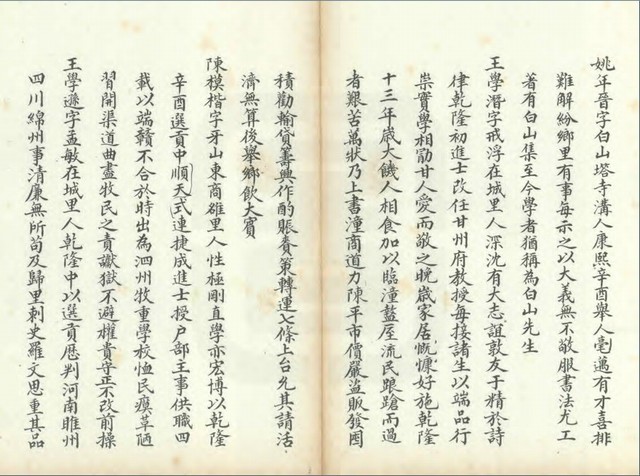 姚年晉字白山塔寺溝人康熙辛酉舉人毫邁有才喜排
難解紛鄉里有事每示之以大義無不敬服書法尤工
著有白山集至今學者猶稱為白山先生
王學潛字戒浮在城里人深沈有大志誼敦友于精於詩
律乾隆初進士改任甘州府教授每接諸生以端品行
崇實學相勖甘人愛而敬之晚歲家居慨慷好施乾隆
十三年歲大饑人相食加以臨潼盩厔流民踉蹌而過
者艱苦萬狀乃上書潼商道力陳平市價嚴盜販發囷
積勸輸貸籌興作酌賑賚策轉運七條上台允其請活
濟無算後舉鄉飲大賓
陳模楷字牙山東商雒里人性極剛直學亦宏博以乾隆
辛酉選貢中順天式連捷成進士授户部主事供職四
載以端贛不合於時出為泗州牧重學校恤民瘼草陋
習開渠道曲盡牧民之責讞獄不避權貴守正不改前操
王學遜字孟敏在城里人乾隆中以選貢應判河南睢州
四川綿州事清廉無所苟及歸里刺史羅文思重其品